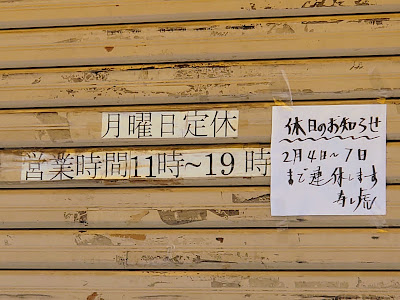 月曜日定休
営業時間11時~19時
休日のお知らせ
2月4日~7日
まで連休します
寿し虎